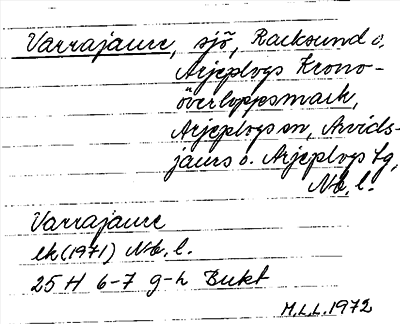 Varrajaure, sjö, Racksund o.
Arjeplogs Krono-
överloppsmark,
Arjeplogs sn, Arvids-
jaurs o. Arjeplogs tg,
Nb. l.
Varrajaure
ek (1971) Nb. l.
25 H 6-7 g-h Bukt
M.L.L. 1972